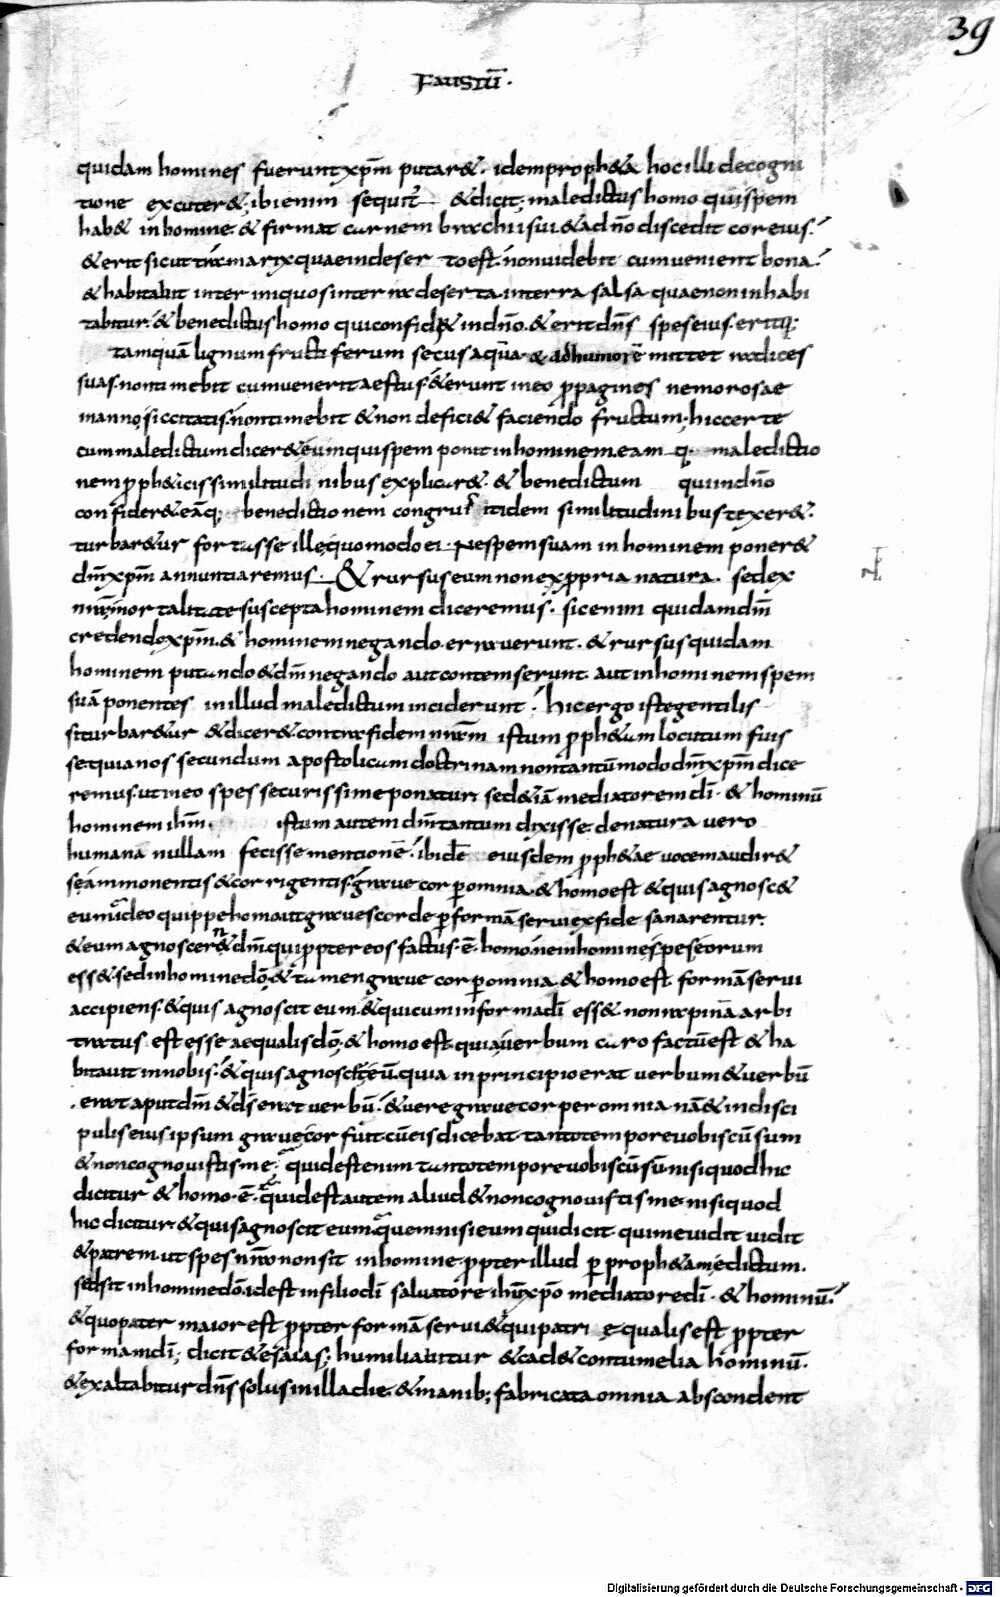 39
Faustū.
quidam homines fuerunt xp̄m putare&. idem proph&a hoc illi decogni
tione excuter&. ibi enim sequit̄ & dicit; maledictus homo qui spem
hab& in homine. & firmat carnem brachii sui & ad nō discedit cor eius.
& erit sicut tramarix quae in deserto est. non videbit cum venient bona.
& habitabit inter iniquos inter ra deserta. in terra salsa quae non inhabi
tabitur. & benedictus homo qui confid& in dn̄o. & erit dn̄s spes eius. eritq;
tamquā lignum fructiferum secus aquā & ad humorē mittet radices
suas. non timebit cum venerit aestus. & erunt in eo p̱pagines nemorosae
in anno siccitatis. non timebit & non defici& faciendo fructum. hic certe
cum maledictum dicer& eum qui spem ponit in hominem. eam q. maledictio
nem p̱ph&icis similitudinibus explicar&. & benedictum qui in dn̄o
confider& eāq; benedictionem congrui itidem similitudinibus texer&.
turbar&ur fortasse ille quomodo ei. Ne spem suam in hominem poner&
dm̄ xp̄m annuntiaremus. & rursus eum non ex p̱pria natura. sed ex
nr̄a mortalitate suscepta hominem diceremus. sic enim quidam dm̄
credendo xp̄m. & hominem negando. erraverunt. & rursus quidam
hominem putando & dm̄ negando aut contemserunt. aut in homine spem
suā ponentes in illud maledictum inciderunt. hic ergo iste gentilis
si turbar&ur & dicer& contra fidem nr̄am istum p̱ph&am locutum fuis
se quia nos secundum apostolicam doctrinam non tantū modo dm̄ xp̄m dice
remus. ut in eo spes securissime ponatur. sed &iā mediatorem dī. & hominū
hominem ihm̄. istum autem dm̄ tantum dixisse. de natura vero
humana nullam fecisse mentionē. ibidē eiusdem p̱ph&ae vocem audir&
se ammonentis & corrigentis. grave cor ꝑ omnia. & homo est & quis agnosc&
eum. ideo quippe homo ait graves corde ꝑ formā servi ex fide sanarentur.
& eum agnoscer&n dm̄ qui p̱pter eos factus. ē. homo. ne in homine spes eorum
ess&. sed in homine dō. & tamen grave cor ꝑ omnia. & homo est formā servi
accipiens. & quis agnoscit eum. & qui cum in forma dī ess& non rapinā arbi
tratus est esse aequalis dō. & homo est. quia verbum caro factū est & ha
bitavit in nobis. & quis agnoscit eū. quia in principio erat verbum & verbū
erat aput dm̄ & ds̄ erat verbū. & vere grave cor per omnia. nā & in disci
pulis eius ipsum grave cor fuit cū eis dicebat. tanto tempore vobiscū sum
& non cognovistis me. quid est enim tanto tempore vobiscū sū. nisi quod hic
dicitur & homo. ē. quid est autem aliud & non cognovistis me. nisi quod
hic dicitur. & quis agnoscit eum. quem nisi eum qui dicit. qui me vidit vidit
& patrem. ut spes nr̄a non sit in homine. p̱pter illud per proph&am edictum.
sed sit in homine dō. id est in filio dī salvatore ihū xp̄o mediatore dī. & hominū.
& quo pater maior est p̱pter formā servi & qui patri ęqualis est p̱pter
formam dī; dicit & esaias; humiliabitur & cad& contumelia hominū.
& exaltabitur dn̄s solus in illa die. & manib; fabricata omnia abscondent
Digitalisierung gefördert durch die Deutsche Forschungsgemeinschaft - DFG